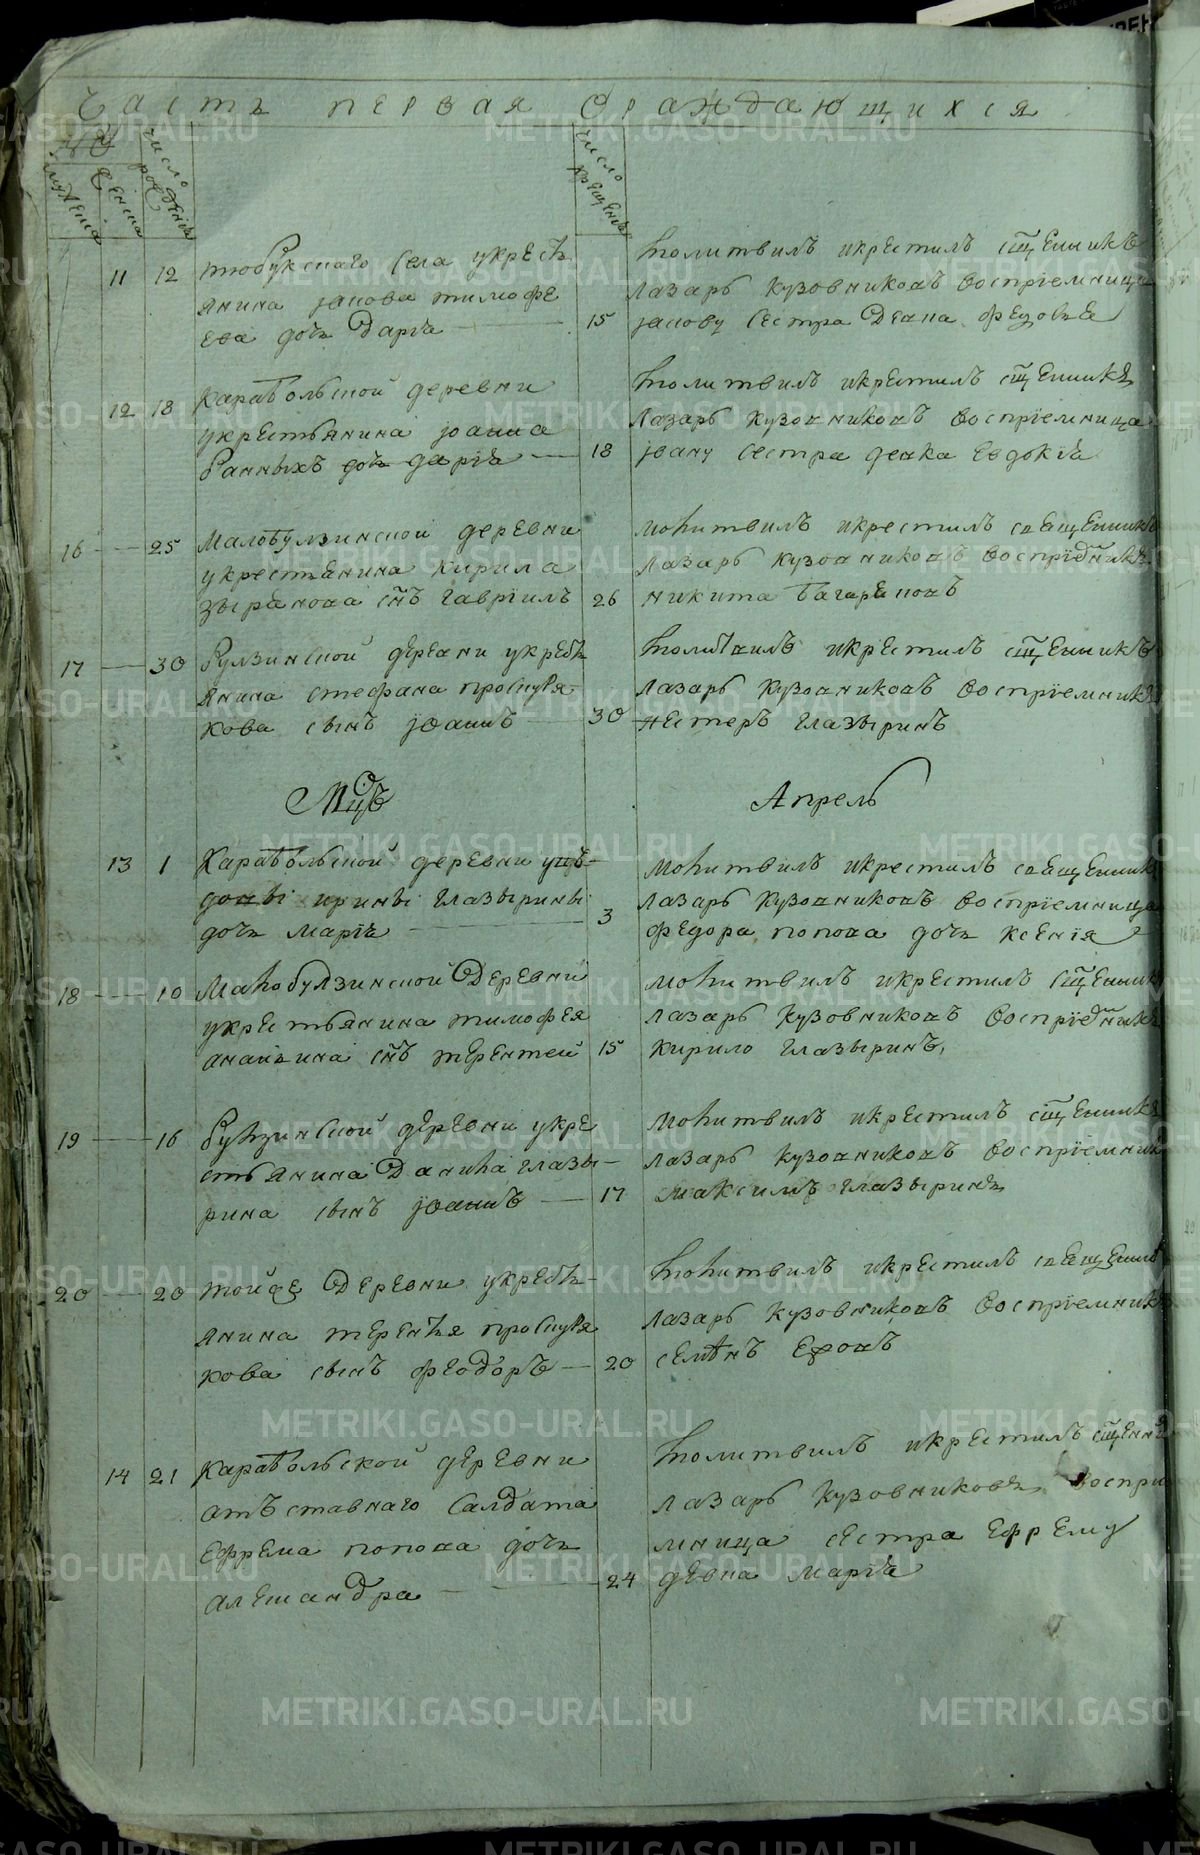 Часть первая Ораждающихся
Число рожденія
Число крещенія
11 12 тюбукскаго села укресть
янина Iакова тимофе
ева дочь Дарiя
молитвилъ икрестилъ сщенникъ
лазарь Кузовниковъ воспрiемница
15 Iакову сестра Девка федовья
12 18 Карабольской деревни
укрестьянина Iоанна
банныхъ дочь дарiя
молитвилъ икрестилъ сщенникъ
лазарь Кузовниковъ воспрiемница
18 Iоану сестра девка Евдокiя
16 25 малобулзинской деревни
укрестьянина кирила
зырянова снъ гаврiилъ
молитвилъ икрестилъ священникъ
лазарь кузовниковъ воспрiемникъ
26 никита Багаряковъ
17 30 булзинской деревни укресть
янина стефана проскуря
кова сынъ Iоаннъ
молитвилъ икрестилъ сщенникъ
лазарь Кузовниковъ воспрiемникъ
30 нестеръ глазыринъ
Мцъ Апрель
13 1 Карабольской деревни увъ-
довы ирины глазырины
дочь марiя
молитвилъ икрестилъ священник
лазарь Кузовниковъ воспрiемница
3 федора попова дочь ксенiя
18 10 Малобулзинской Деревни
укрестьянина тимофея
ананьина снъ терентей
молитвилъ икрестилъ сщенник
лазарь Кузовниковъ воспрiемникъ
15 кирило глазыринъ,
19 16 булзинской деревни укре
стьянина Данила глазы-
рина сынъ Iоаннъ
молитвилъ икрестилъ сщенникъ
лазарь кузовниковъ воспрiемник
17 максимъ глазыринъ
20 20 тойже Деревни укресть-
янина терентья проскуря
кова сынъ феодоръ
молитвилъ икрестилъ священни
лазарь Кузовниковъ воспрiемник
20 семенъ Ежовъ
14 21 Карабольской деревни
отъставнаго Салдата
ефрема попова дочь
алешандра
молитвилъ икрестилъ сщенни
лазарь Кузовниковъ воспри
мница сестра ефрему
24 девка марiя